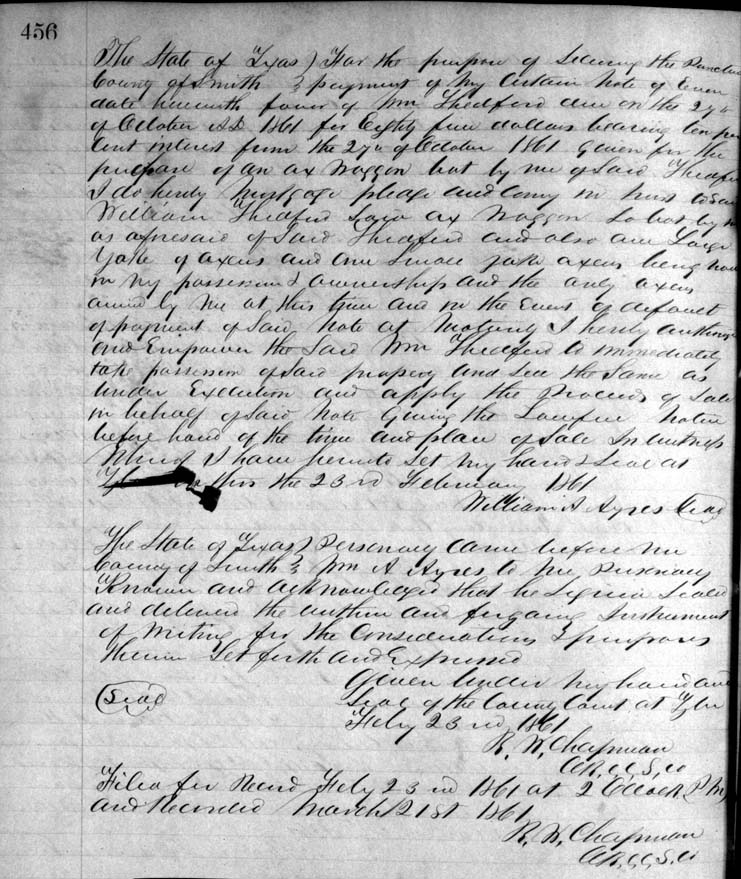 456
The State of Texas) For the purpose of Securing the Punctual
County of Smith } payment of my Certain Note of Even
date herewith favor of Wm Thedford due on the 27th
of October AD 1861 for Eighty five dollars bearing ten per
Cent interest from the 27th of October 1861 given for the
purchase of an ox Waggon bot by me of Said Thedford
I do hereby Mortgage pledge and Convey in trust to Said
William Thedford Said ox Waggon So bot by me
as aforesaid of Said Thedford and also one Large
Yoke of oxens and one Small yoke oxens being now
in my possession & ownership and the only oxens
owned by me at this time and in the Event of default
of payment of Said Note at Maturity I hereby authorize
and Empower the Said Wm Thedford to immediately
take possession of Said property and Sell the Same as
under Execution and apply the Proceeds of Sale
in behalf of Said Note Giving the Lawful Notice
before hand of the time and place of Sale In Witness
Whereof I have hereunto Set my hand & Seal at
this the 23rd February 1861
William A Ayres (Seal)
The State of Texas) Personally Came before me
County of Smith } Wm A Ayres to me Personally
Known and acknowledged that he Signed Sealed
and delivered the within and forgoing Instrument
of Writing for the Considerations & purposes
therein Set forth and Expressed
Given Under my hand and
(Seal) Seal of the County Court at Tyler
Feby 23rd 1861
R. W. Chapman
Clk. C. C. S. Co
Filed for Record Feby 23rd 1861 at 2 Oclock (P M)
and Recorded March 21st 1861
R. W. Chapman
Clk. C. C. S. Co